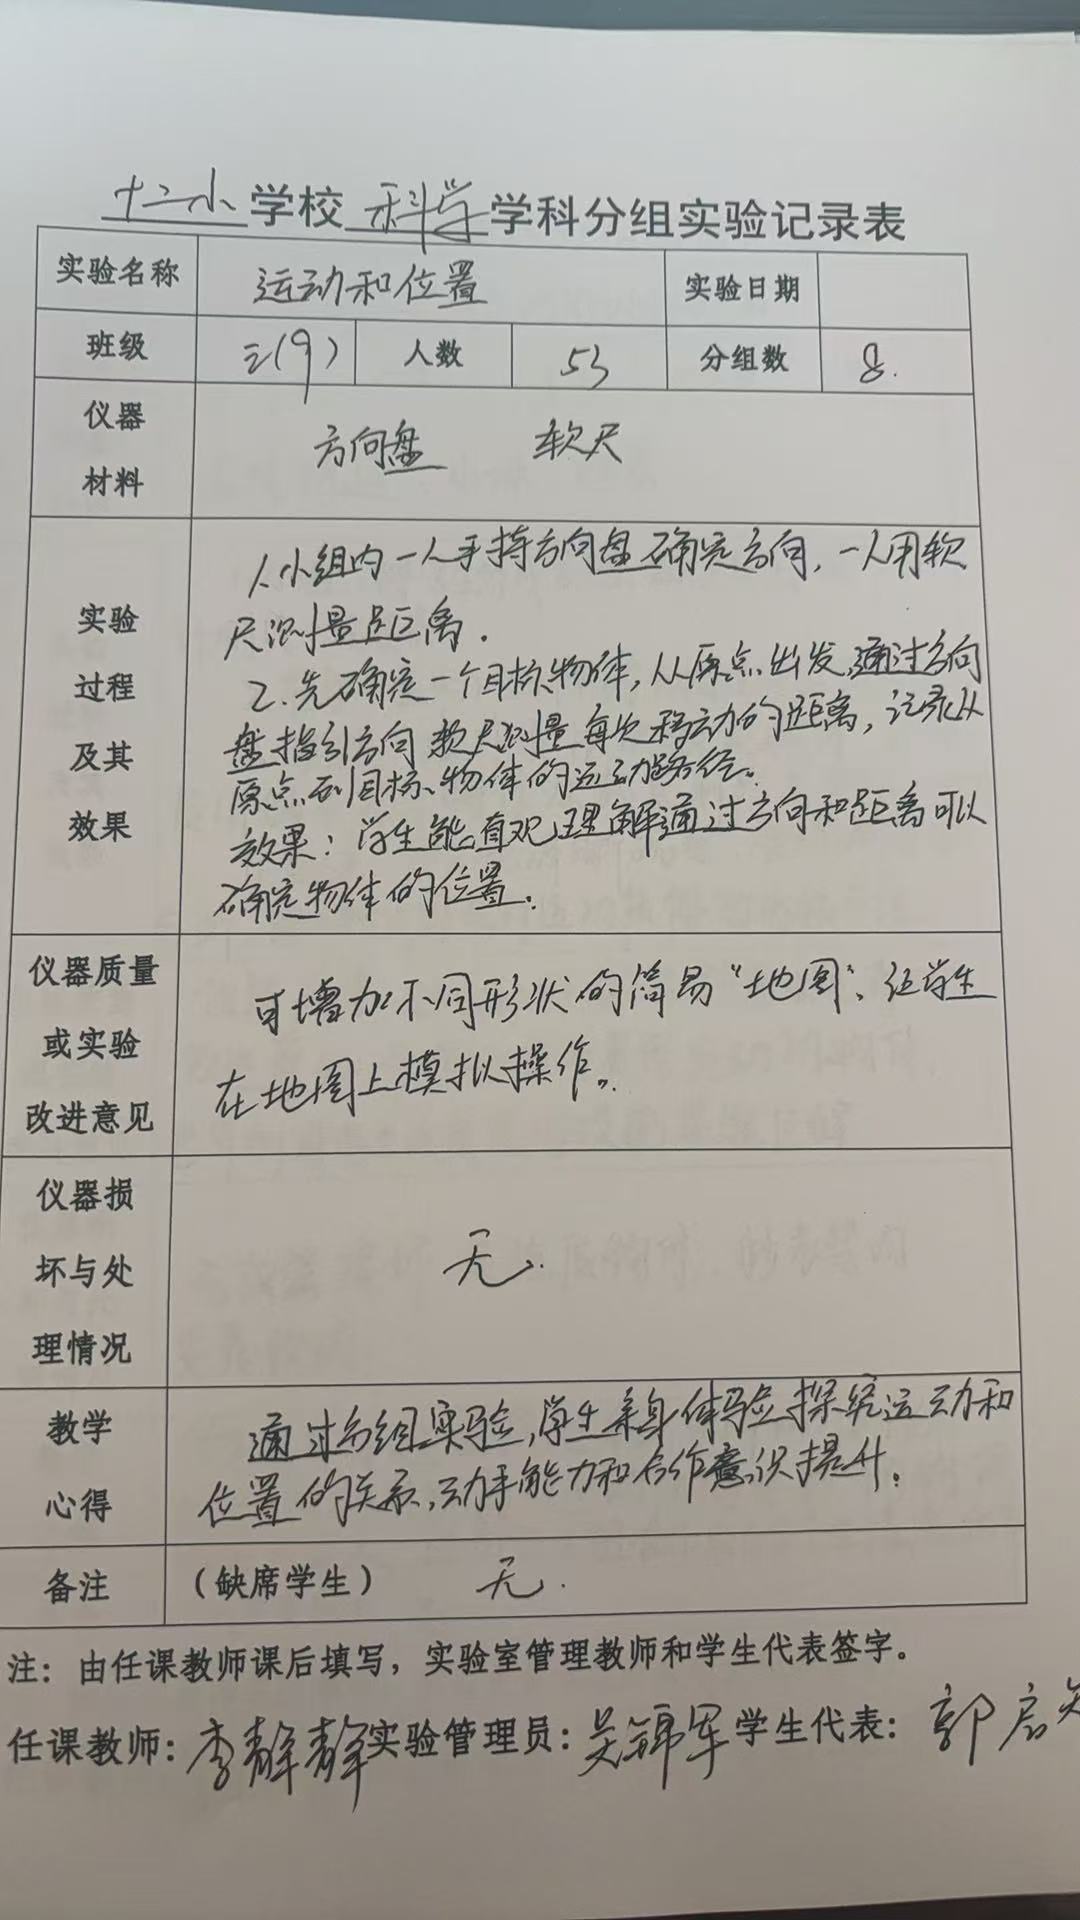 十二小学校科学学科分组实验记录表
实验名称 运动和位置 实验日期
班级 三(9) 人数 53 分组数 8.
仪器
材料
方向盘 软尺
实验
过程
及其
效果
1.小组内一人手持方向盘确定方向，一人用软
尺测量距离.
2.先确定一个目标物体,从原点出发,通过方向
盘指引方向 软尺测量每次移动的距离,记录从
原点到目标物体的运动路径。
效果：学生能直观理解通过方向和距离可以
确定物体的位置.
仪器质量
或实验
改进意见
可增加不同形状的简易“地图”，让学生
在地图上模拟操作。
仪器损
坏与处
理情况
无.
教学
心得
通过分组实验,学生亲身体验探究运动和
位置的关系,动手能力和合作意识提升.
备注 (缺席学生) 无.
注：由任课教师课后填写，实验室管理教师和学生代表签字。
任课教师：李静静 实验管理员：吴锦军 学生代表：郭启